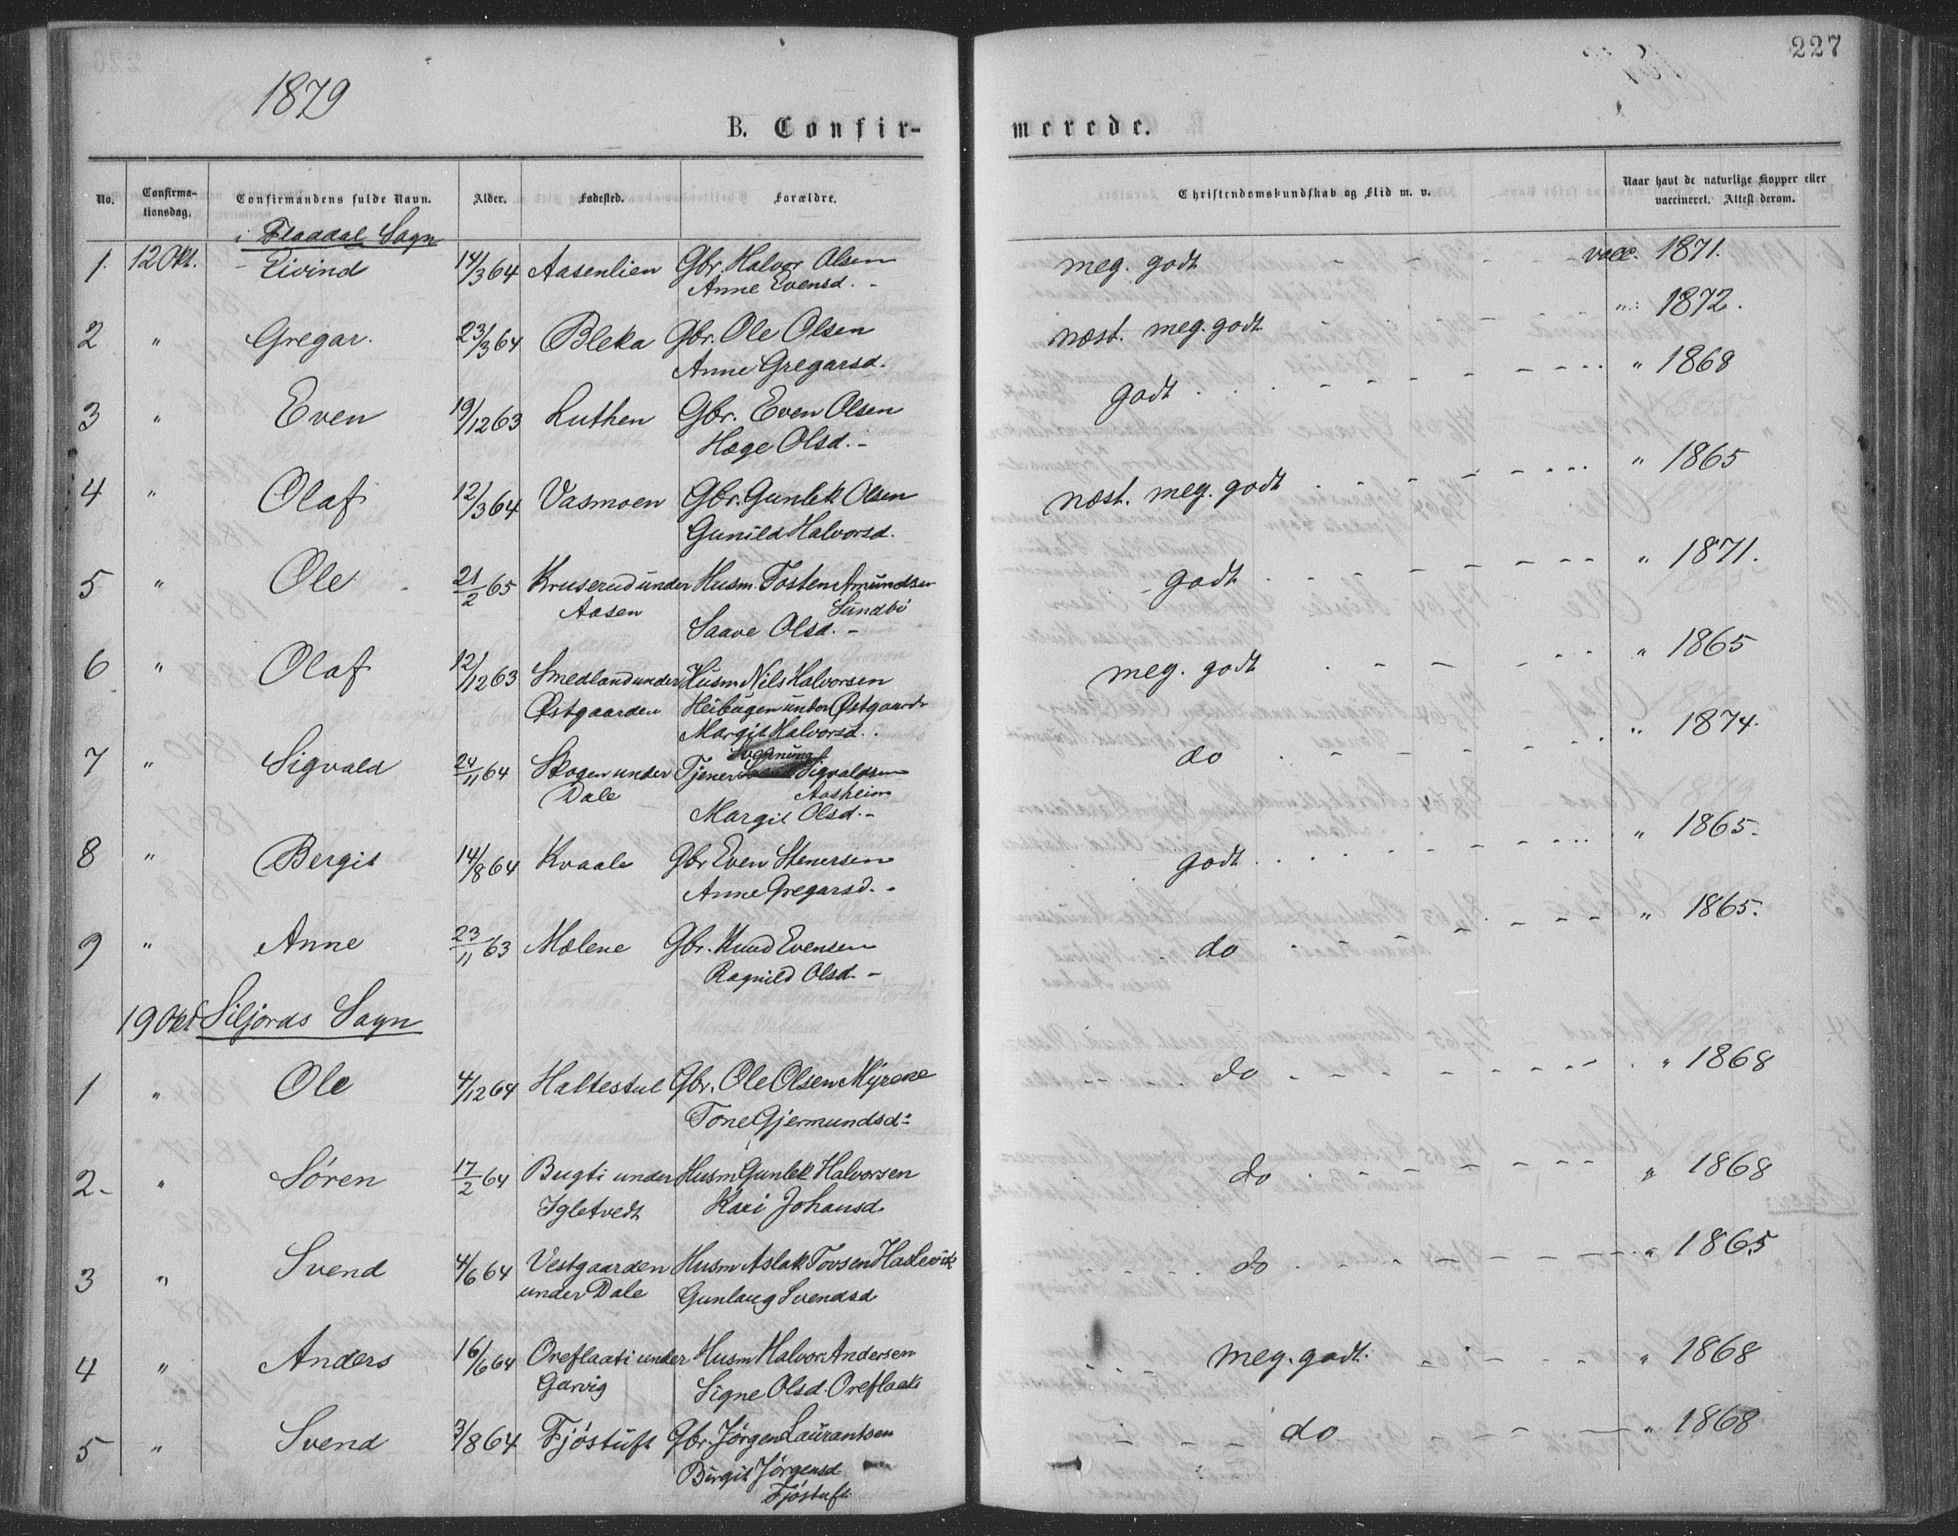 227
1879
B. Confir-
merede.
No. Confirma-tionsdag. Confirmandens fulde Navn. Alder. Fødested. Forældre. Christendomskundskab og Flid m. v. Naar havt de naturlige Kopper eller vaccineret. Attest derom.
i Flaadal Sogn
1. 12 Okt. Eivind 14/3 64 Aasenlien Gbr. Halvor Olsen meg. godt vacc. 1871.
Anne Evensd.
2 " Gregar. 23/3 64 Bleka Gbr. Ole Olsen næst. meg. godt " 1872.
Anne Gregarsd.
3 " Even 19/12 63 Luthen Gbr. Even Olsen godt " 1868
Hæge Olsd.
4 " Olaf 12/3 64 Vasmoen Gbr. Gunlek Olsen næst. meg. godt " 1865
Gunild Halvorsd.
5 " Ole 21/2 65 Kruserud under Husm Tosten Amundsen godt " 1871.
Aasen Sundbö
Saave Olsd.
6 " Olaf 12/12 63 Smedland under Husm Nils Halvorsen meg. godt " 1865
Østgaarden Heibugen under Østgaard
Margit Halvorsd.
7 " Sigvald 24/11 64 Skogen under Tjener Sigvaldsen do " 1874.
Dale Aasheim
Margit Olsd.
8 " Bergit 14/8 64 Kvaale Gbr Even Stenersen godt " 1865.
Anne Gregarsd.
9 " Anne 23/11 63 Mælene Gbr. Knud Evensen do " 1865.
Ragnild Olsd.
19 Okt Siljords Sogn
1 " Ole 4/12 64 Haltestul Gbr. Ole Olsen Myrene do " 1868
Tone Gjermundsd.
2 " Søren 17/2 64 Bugti under Husm Gunlek Halvorsen do " 1868
Igletvedt Kari Johansd.
3 " Svend 4/6 64 Vestgaarden Husm Aslak Tovsen Hadlevik do " 1865
under Dale Gunlaug Svendsd
4 " Anders 16/6 64 Oreflaati under Husm Halvor Andersen meg. godt. " 1868
Garvig Signe Olsd. Oreflaat
5 " Svend 3/8 64 Fjøstuft Gbr. Jørgen Laurantsen do " 1868
Birgit Jørgensd
Fjøstuft